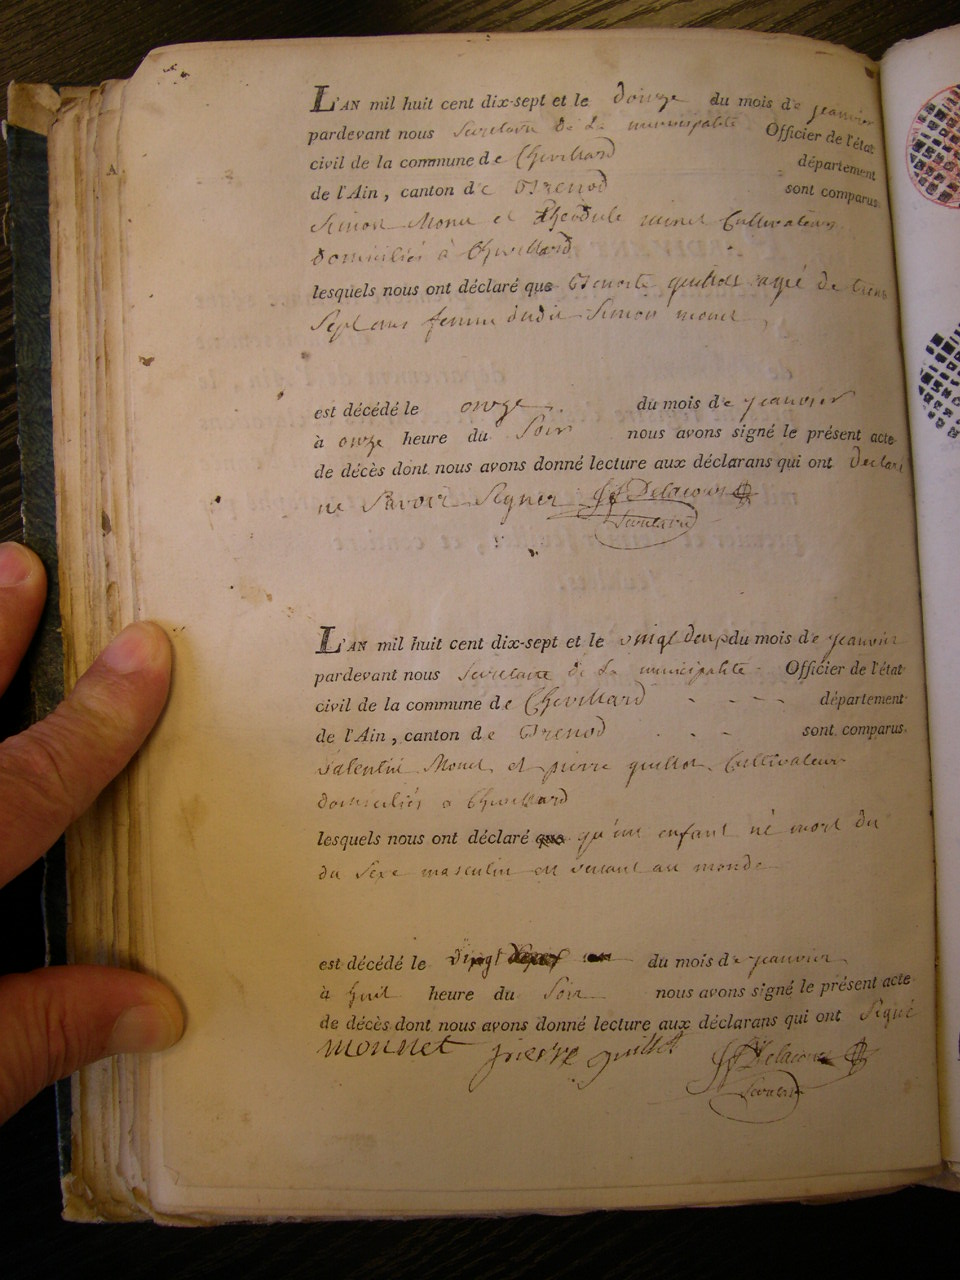 L'AN mil huit cent dix-sept et le douze du mois de jeanvier
pardevant nous Secretaire de La municipalité Officier de l'état
civil de la commune de Chevillard département
de l'Ain, canton de Brenod sont comparus
Simon Monet et Théodule monet Cultivateurs
domiciliés à Chevillard
lesquels nous ont déclaré que Benoite guillot agée de trente
Sept ans femme dudit Simon monet
est décédé le onze du mois de jeanvier
à onze heure du Soir nous avons signé le présent acte
de décès dont nous avons donné lecture aux déclarans qui ont declaré
ne Savoir Signer Delacour
Secretaire
L'AN mil huit cent dix-sept et le vingt deux du mois de jeanvier
pardevant nous Secretaire de La municipalité Officier de l'état
civil de la commune de Chevillard département
de l'Ain, canton de Brenod sont comparus
Valentin Monet et pierre guillot Cultivateurs
domiciliés a Chevillard
lesquels nous ont déclaré que qu'un enfant né mort du
du Sexe masculin en venant au monde
est décédé le vingt un du mois de jeanvier
à huit heure du Soir nous avons signé le présent acte
de décès dont nous avons donné lecture aux déclarans qui ont Signé
monnet pierre guillot Delacour
Secretaire